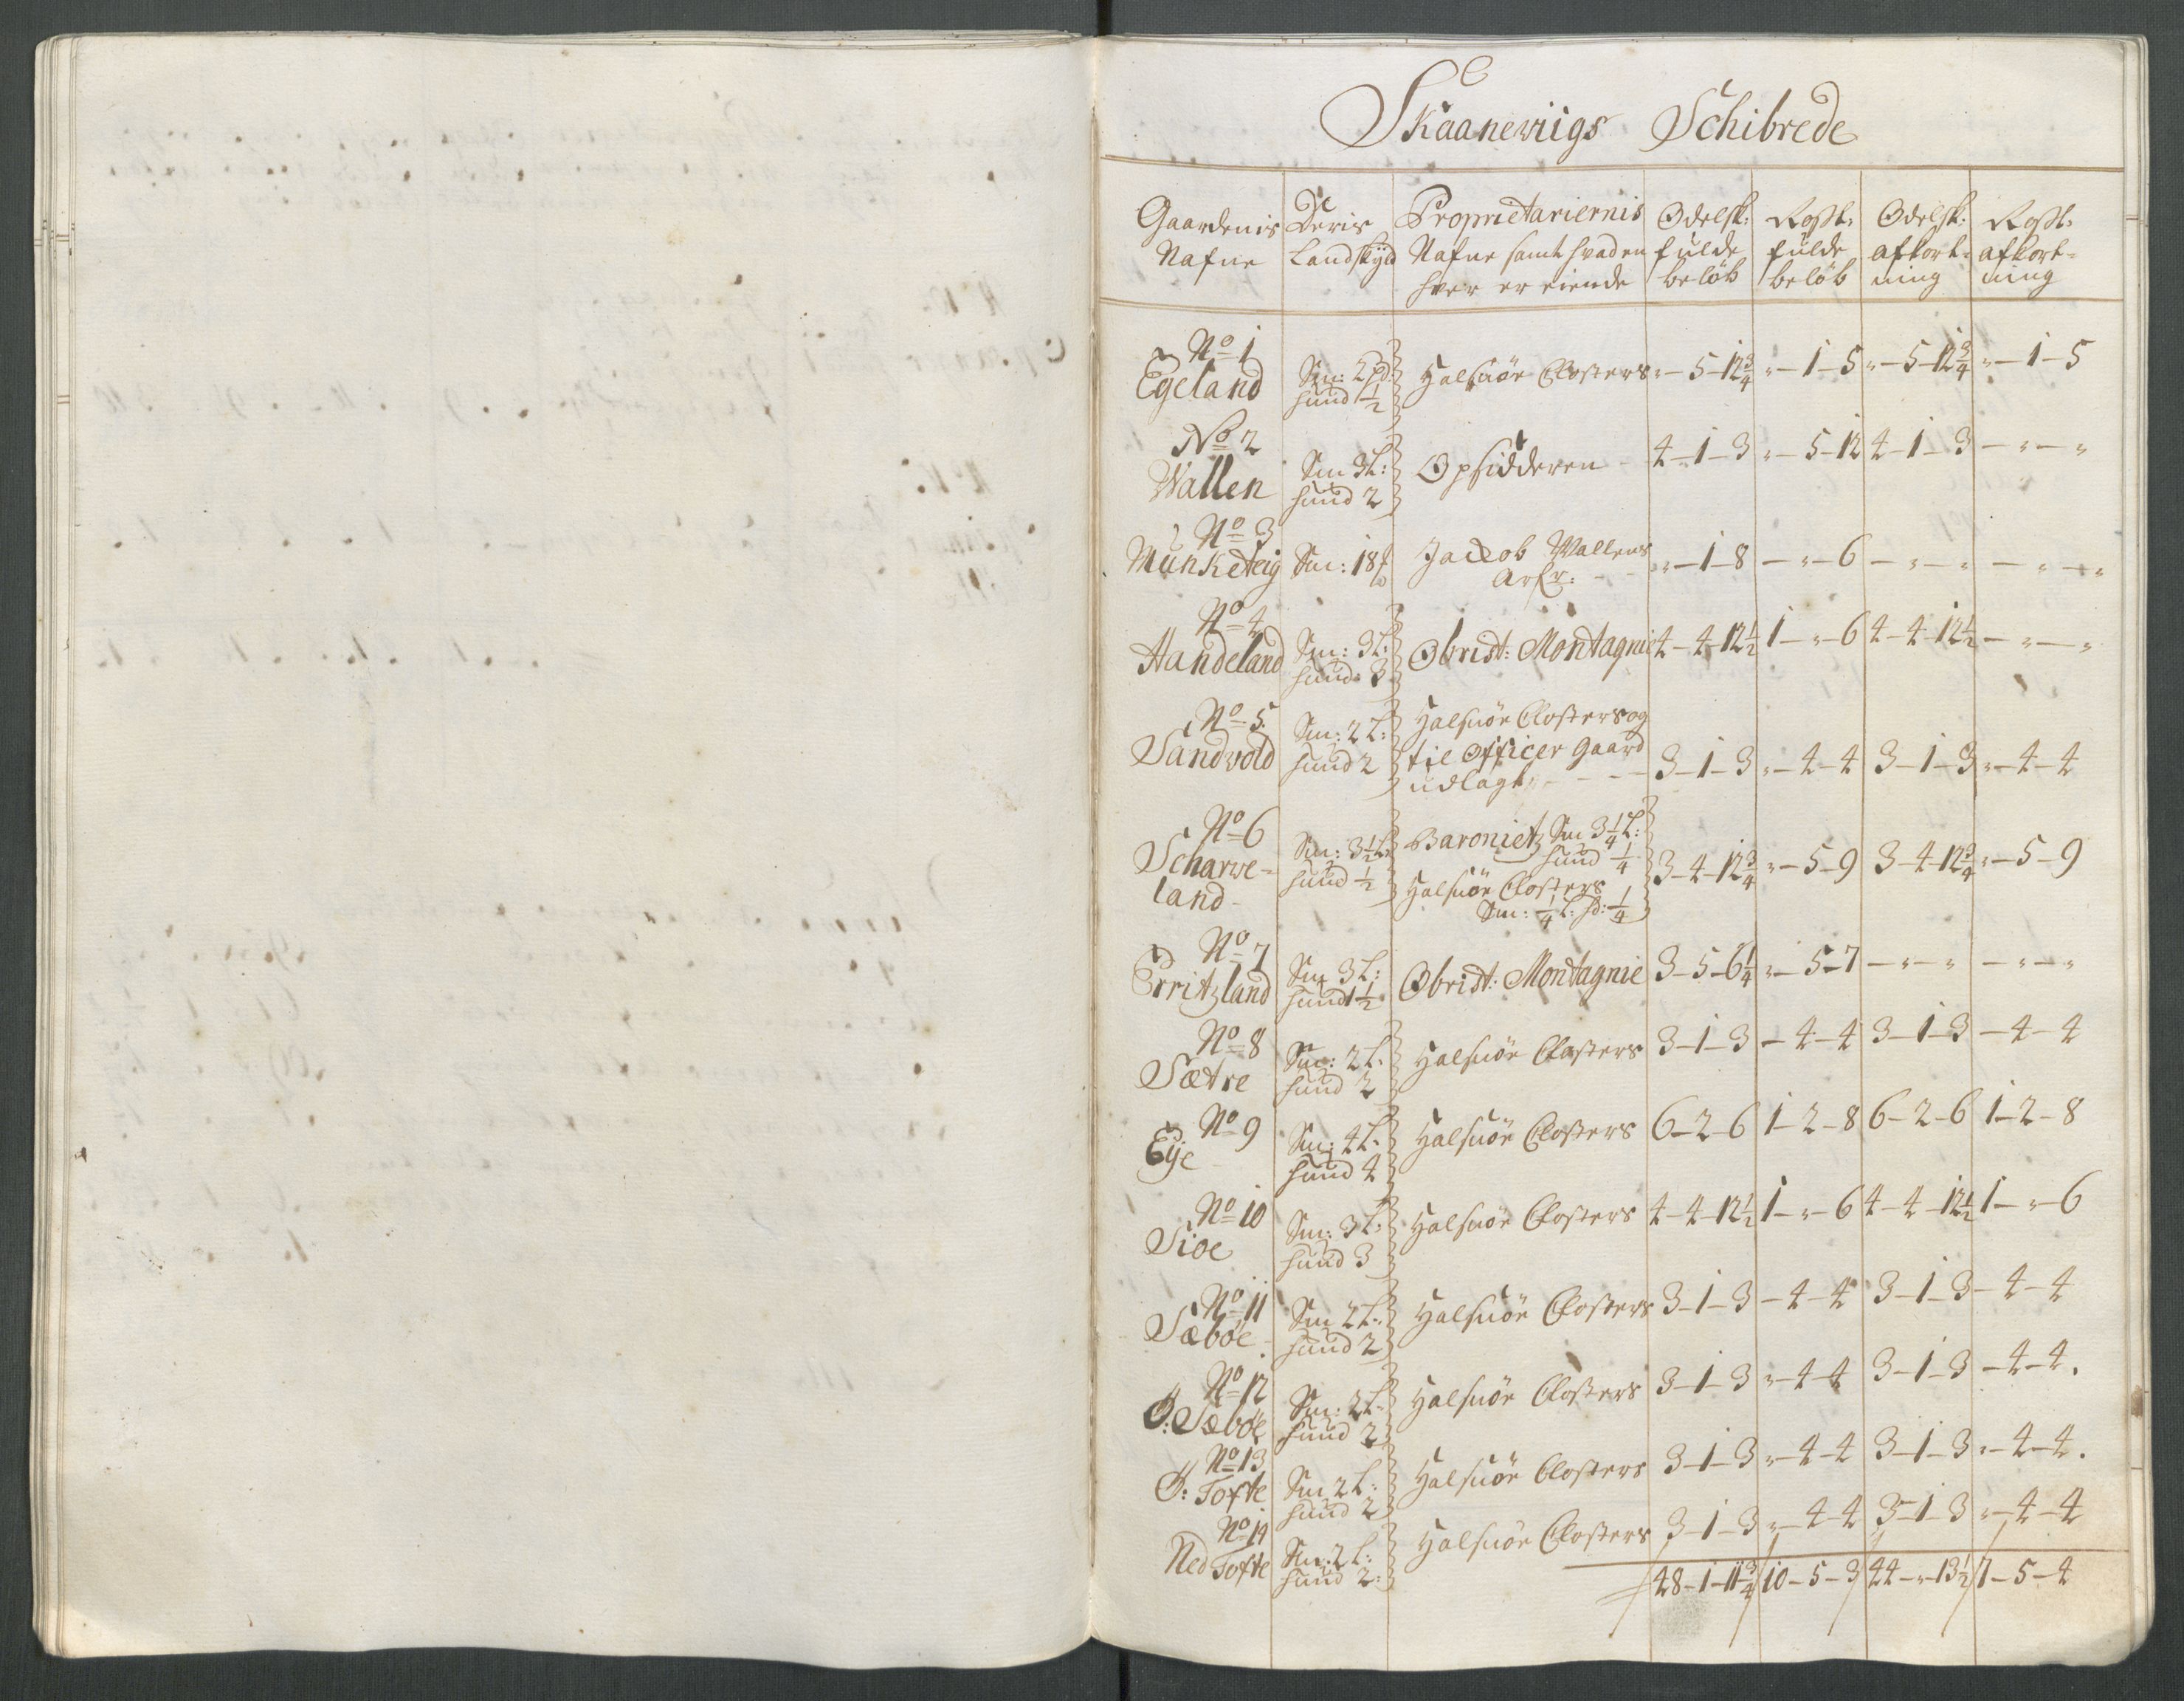 Skaaneviigs Schibrede
Gaardenis Nafne | Deris Landskyld | Proprietariernis Nafne samt hvad en hver er eiende | Odelsk: fulde beløb | Rosst: fulde beløb | Odelsk: afkort-ning | Rosst: afkort-ning
No 1
Egeland | Sm: 2 pd: hund ½ | Halsnöe Closters | "-5-12¾ | "-1-5 | "-5-12¾ | "-1-5
No 2
Wallen | Sm 3 L: hund 2 | Opsidderen | 4-1-3 | "-5-12 | 4-1-3 | -"-"
No 3
Munketeig | Sm: 18 | Jacob Wallens Arfr: | "-1-8 | -"-6 | -"-" | -"-"
No 4
Handeland | Sm: 3 L: hund: 3 | Obrist: Montagnie | 4-4-12½ | 1-"-6 | 4-4-12½ | -"-"
No 5
Sandvold | Sm: 2 L: hund 2 | Halsnöe Closters og til Officer Gaard udlagt | 3-1-3 | "-4-4 | 3-1-3 | "-4-4
No 6
Scharve-land | Sm: 3½ L: hund ½ | Baroniet Sm 3¼ L: hund ¼ Halsnöe Closters Sm: ¼ L: hd: ¼ | 3-4-12¾ | "-5-9 | 3-4-12¾ | "-5-9
No 7
Erritzland | Sm 3 L: hund 1½ | Obrist: Montagnie | 3-5-6¼ | "-5-7 | -"-" | -"-"
No 8
Sætre | Sm: 2 L: hund 2 | Halsnöe Closters | 3-1-3 | -4-4 | 3-1-3 | -4-4
No 9
Eye | Sm: 4 L: hund 4 | Halsnöe Closters | 6-2-6 | 1-2-8 | 6-2-6 | 1-2-8
No 10
Sioe | Sm: 3 L: hund 3 | Halsnöe Closters | 4-4-12½ | 1-"-6 | 4-4-12½ | 1-"-6
No 11
Sæböe | Sm 2 L: hund 2 | Halsnöe Closters | 3-1-3 | -4-4 | 3-1-3 | -4-4
No 12
Ö: Sæböe | Sm: 2 L: hund 2 | Halsnöe Closters | 3-1-3 | "-4-4 | 3-1-3 | -4-4.
No 13
Ö: Tofte | Sm 2 L: hund 2 | Halsnöe Closters | 3-1-3 | "-4-4 | 3-1-3 | "-4-4.
No 14
Ned Tofte | Sm: 2 L: hund 2: | Halsnöe Closters | 3-1-3 | "-4-4 | 3-1-3 | "-4-4
48-1-11¾ | 10-5-3 | 44-"-13½ | 7-5-4